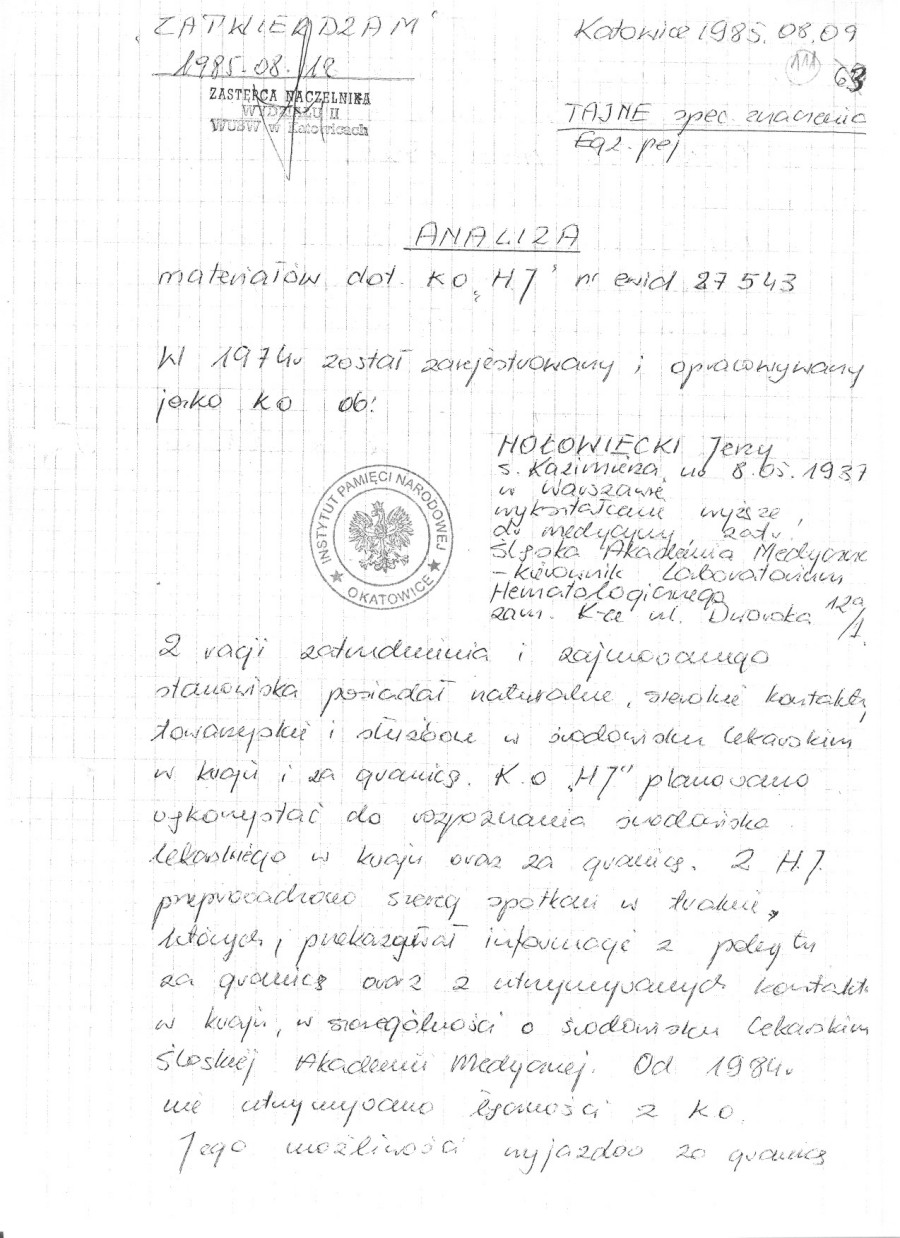 "ZATWIERDZAM"
1985.08.12
ZASTĘPCA NACZELNIKA
WYDZIAŁU II
WUSW w Katowicach
Katowice 1985.08.09
111
63
TAJNE spec. znaczenia
Egz. poj.
ANALIZA
materiałów dot. KO "HJ" nr ewid 27543
W 1974r został zarejestrowany i opracowywany
jako KO ob:
HOŁOWIECKI Jerzy
s. Kazimierza, ur 8.05.1937
w Warszawie
wykształcenie wyższe,
dr medycyny, zatr.
Śląska Akademia Medyczna
- kierownik Laboratorium
Hematologicznego
zam. K-ce ul. Dworska 12a/1
INSTYTUT PAMIĘCI NARODOWEJ
O KATOWICE
Z racji zatrudnienia i zajmowanego
stanowiska posiadał naturalne, szerokie kontakty
towarzyskie i służbowe w środowisku lekarskim
w kraju i za granicą. K.O "HJ" planowano
wykorzystać do rozpoznania środowiska
lekarskiego w kraju oraz za granicą. Z H.J.
przeprowadzono szereg spotkań w trakcie,
których, przekazywał informacje z pobytu
za granicą oraz z utrzymywanych kontakt
w kraju, w szczególności o środowisku lekarskim
Śląskiej Akademii Medycznej. Od 1984r
nie utrzymywano łączności z KO.
Jego możliwości wyjazdów za granicę